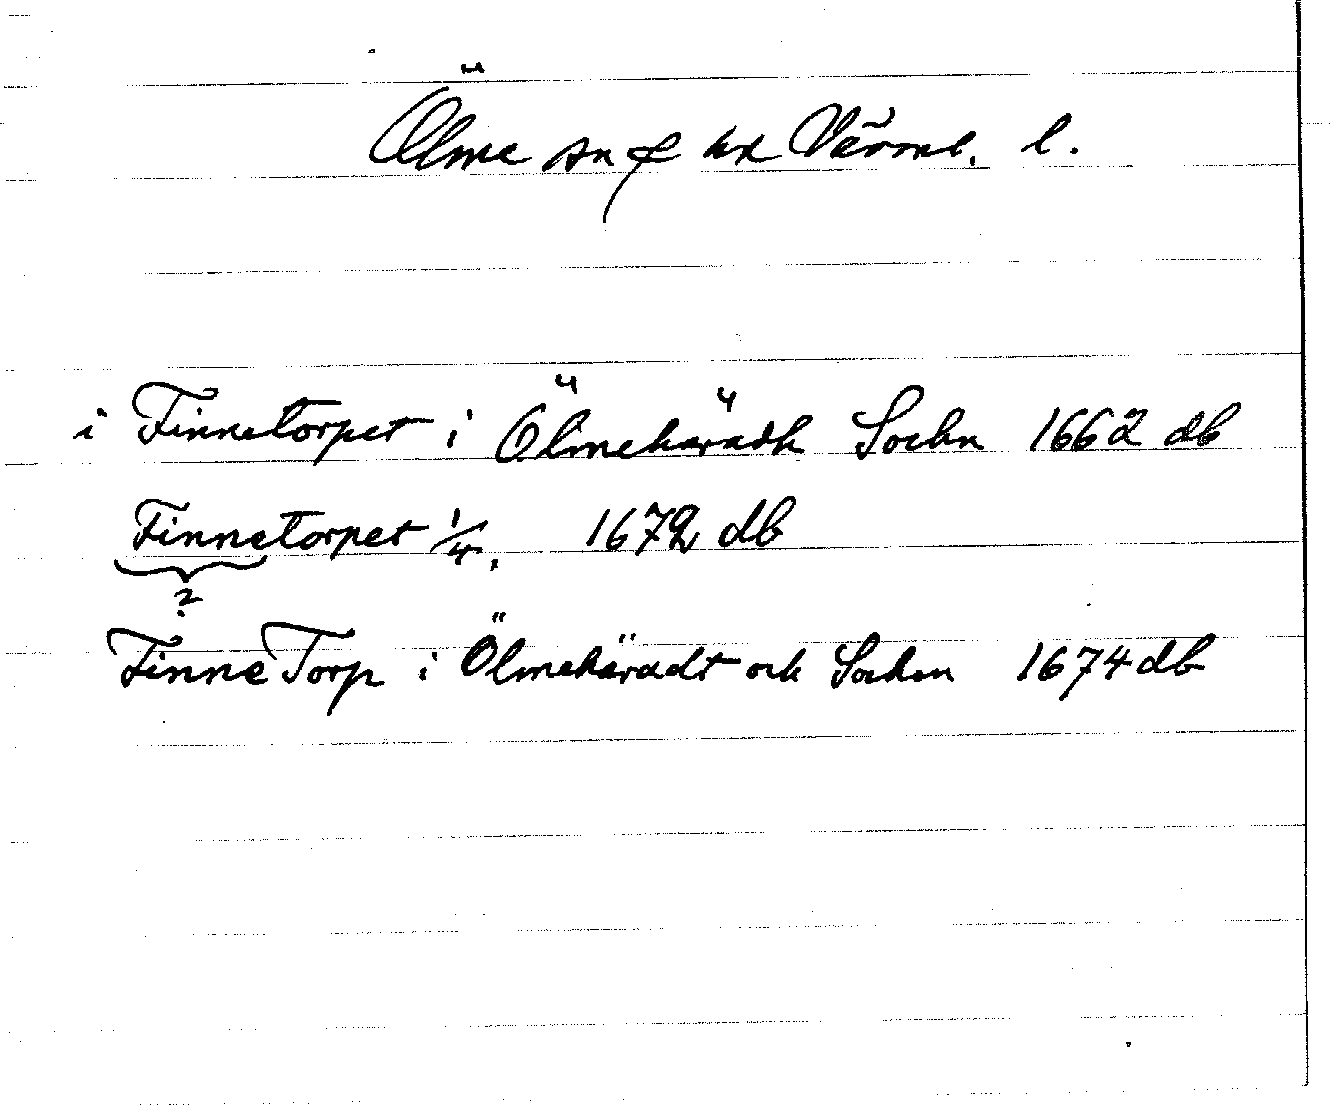 Ölme sn & hd Värml. l.
i Finnetorpet i Ölmehäradh Sochn 1662 db
Finnetorpet 1/4, 1672 db
?
FinneTorp i Ölmehäradt och Sochen 1674 db